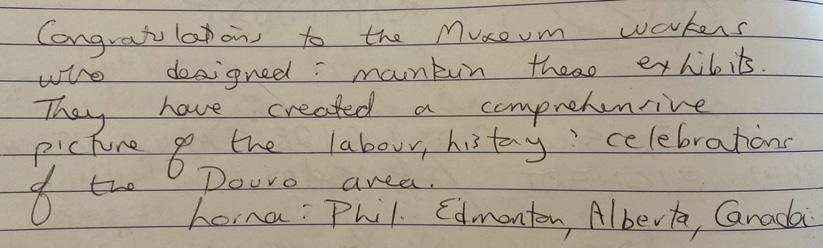 Congratulations to the Museum workers
who designed : maintain these exhibits.
They have created a comprehensive
picture of the labour, history : celebrations
of the Douro area.
Lorna : Phil. Edmonton, Alberta, Canada.